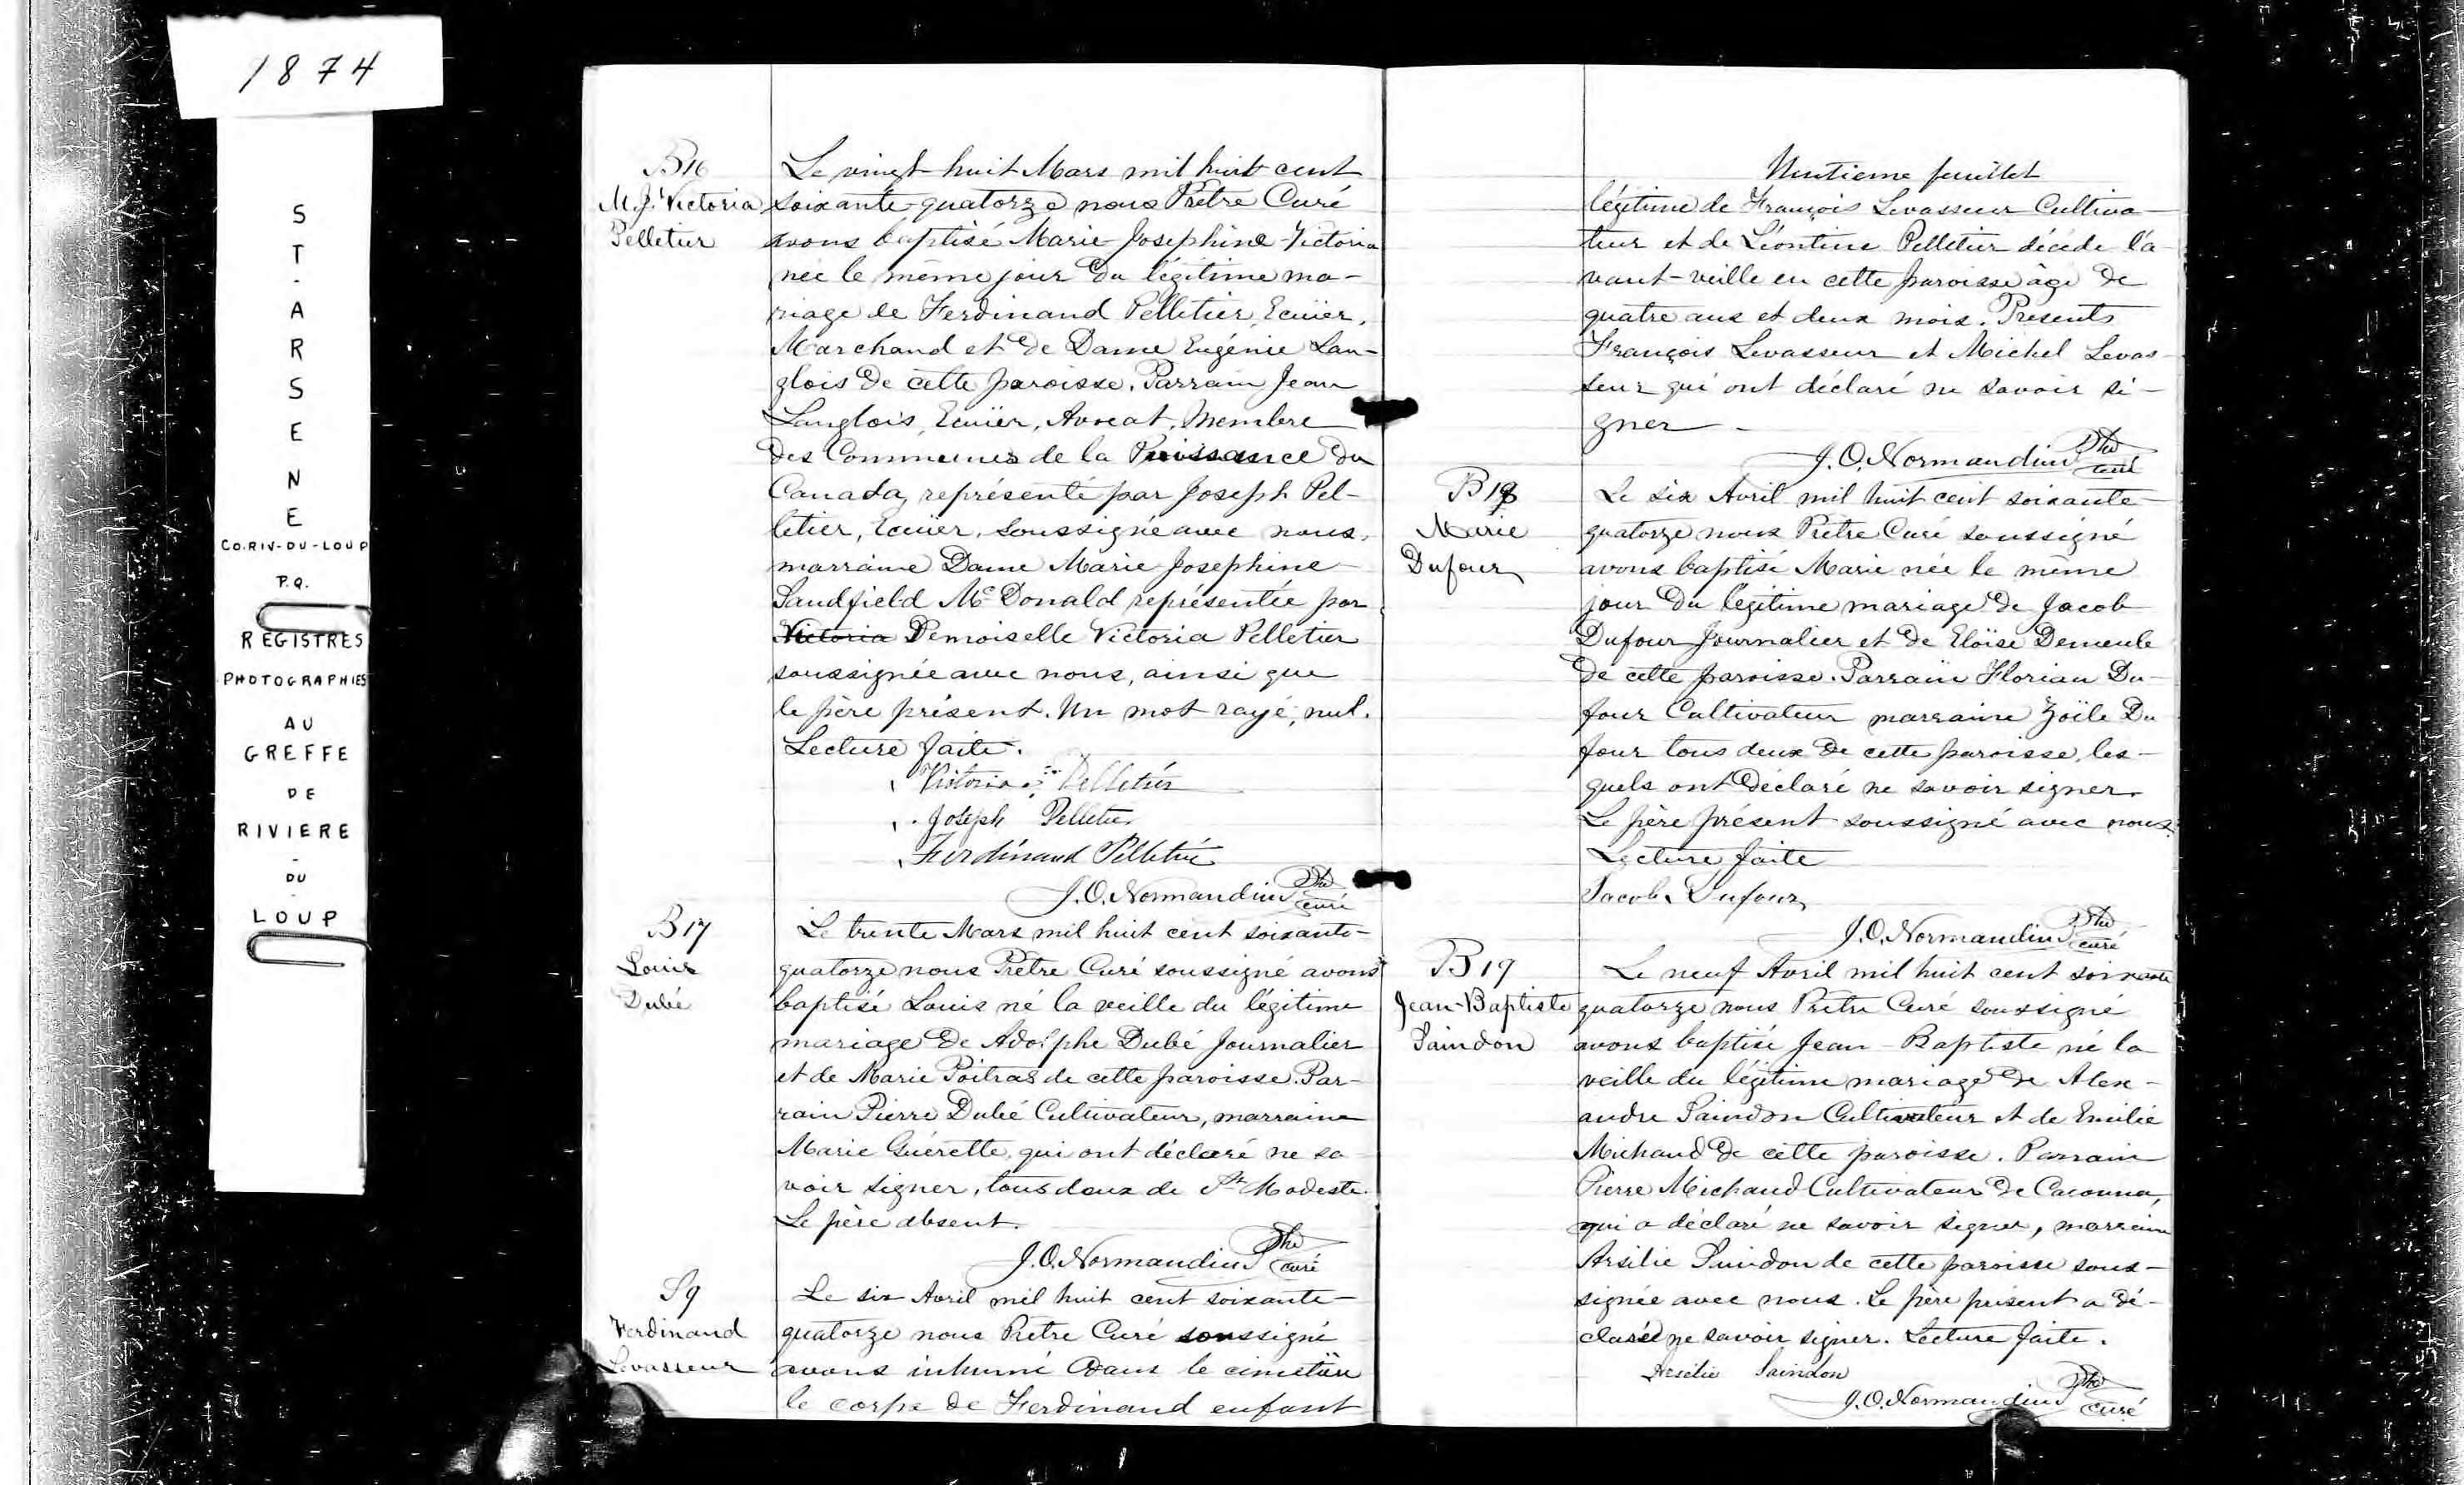 1874
S
T
-
A
R
S
E
N
E
CO. RIV-DU-LOUP
P.Q.
REGISTRES
PHOTOGRAPHIES
AU
GREFFE
DE
RIVIERE
-
DU
-
LOUP
B16
M. J. Victoria
Pelletier
Le vingt-huit Mars mil huit cent
soixante-quatorze nous Prêtre Curé
avons baptisé Marie Josephine Victoria
née le même jour du légitime ma-
riage de Ferdinand Pelletier, Ecuier,
Marchand et de Dame Eugénie Lan-
glois de cette paroisse. Parrain Jean
Langlois, Ecuier, Avocat, Membre
des Communes de la Puissance du
Canada, représenté par Joseph Pel-
letier, Ecuier, soussigné avec nous,
marraine Dame Marie Josephine
Sandfield McDonald représentée par
Victoria Demoiselle Victoria Pelletier
soussignée avec nous, ainsi que
le père présent. Un mot rayé, nul.
Lecture faite.
Victoria Pelletier
Joseph Pelletier
Ferdinand Pelletier
J. O. Normandin Ptre
curé
B17
Louis
Dubé
Le trente Mars mil huit cent soixante-
quatorze nous Prêtre Curé soussigné avons
baptisé Louis né la veille du légitime
mariage de Adolphe Dubé Journalier
et de Marie Poitras de cette paroisse. Par-
rain Pierre Dubé Cultivateur, marraine
Marie Guérette, qui ont déclaré ne sa
voir signer, tous deux de St Modeste.
Le père absent.
J. O. Normandin Ptre
curé
S9
Ferdinand
Levasseur
Le six Avril mil huit cent soixante-
quatorze nous Prêtre Curé soussigné
avons inhumé dans le cimetière
le corps de Ferdinand enfant
Huitieme feuillet
légitime de François Levasseur Cultiva-
teur et de Léontine Pelletier décédé l'a-
vant-veille en cette paroisse âgé de
quatre ans et deux mois. Présents
François Levasseur et Michel Levas-
seur qui ont déclaré ne savoir si-
gner -
J. O. Normandin Ptre
curé
B18
Marie
Dufour
Le six Avril mil huit cent soixante-
quatorze nous Prêtre Curé soussigné
avons baptisé Marie née le même
jour du légitime mariage de Jacob
Dufour Journalier et de Eloïse Demeule
de cette paroisse. Parrain Florian Du-
four Cultivateur marraine Zoïle Du
four tous deux de cette paroisse, les-
quels ont déclaré ne savoir signer.
Le père présent soussigné avec nous.
Lecture faite
Jacob Dufour
J. O. Normandin Ptre
curé
B19
Jean-Baptiste
Saindon
Le neuf Avril mil huit cent soixante
quatorze nous Prêtre Curé soussigné
avons baptisé Jean-Baptiste né la
veille du légitime mariage de Alex-
andre Saindon Cultivateur et de Emilie
Michaud de cette paroisse. Parrain
Pierre Michaud Cultivateur de Cacouna,
qui a déclaré ne savoir signer, marraine
Arsilie Saindon de cette paroisse sous-
signée avec nous. Le père présent a dé-
claré ne savoir signer. Lecture faite.
Arsilie Saindon
J. O. Normandin Ptre
curé